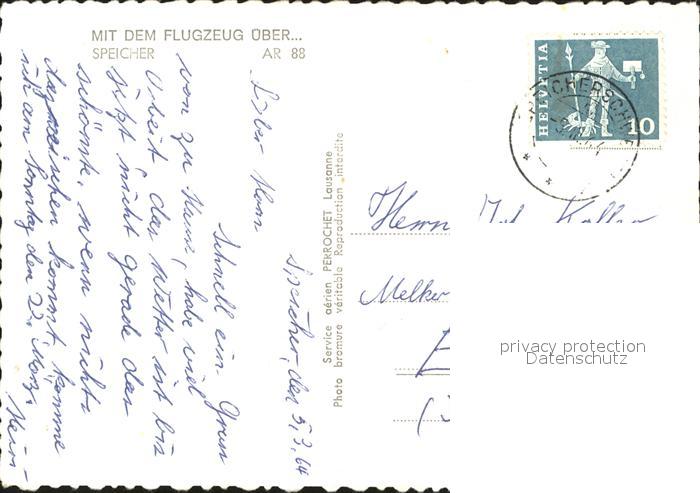 MIT DEM FLUGZEUG ÜBER...
SPEICHER AR 88
HELVETIA
10
Speicher, den 5,3,64
Lieber Herr
Schnell ein Gruss
von zu Haus, habe viel
Arbeit das Wetter ist bis
jetzt nicht gerade das
schönste, wenn nichts
dazwischen kommt komme
ich am Sonntag den 22. März.
Service aérien PERROCHET Lausanne
Photo bromure véritable Reproduction interdite
Herrn
Melker
privacy protection
Datenschutz